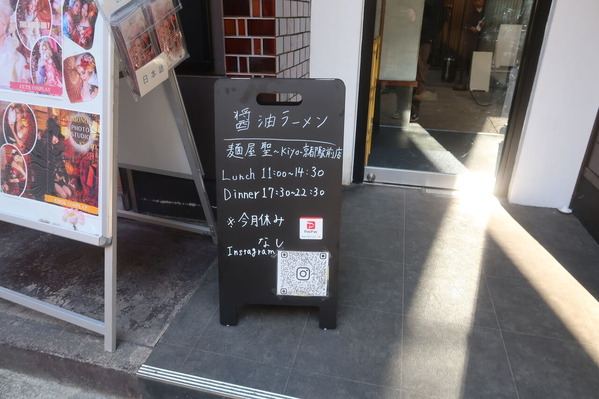 醤油ラーメン
麺屋 聖〜Kiyo-京都駅前店
Lunch 11:00~14:30
Dinner 17:30~22:30
※今月休み
なし
Instagram
PayPay
日本
PHOTO
STUDIO